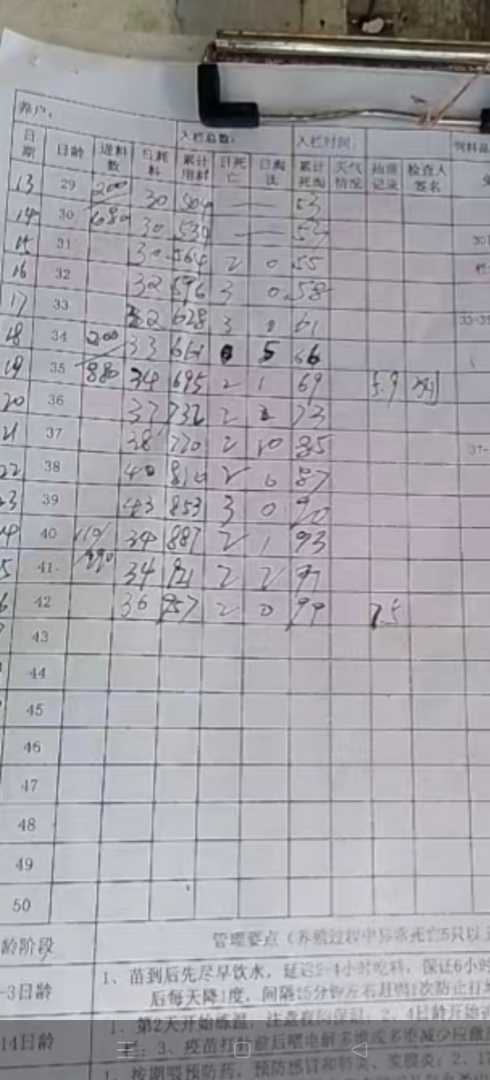 养户:
入栏总数: 入栏时间: 饲料品
日期 日龄 进料数 日耗料 累计用料 日死亡 日淘汰 累计死淘 天气情况 抽滴记录 检查人签名
13 29 200 30 504 — 53
14 30 680 30 534 — 53
15 31 30 564 2 0 55
16 32 32 596 3 0 58
17 33 32 628 3 0 61
18 34 200 33 661 5 66
19 35 880 34 695 2 1 69 5.9
20 36 37 732 2 73
21 37 38 770 2 10 85
22 38 40 810 2 0 87
23 39 43 853 3 0 90
40 110 34 887 2 1 93
41 990 34 921 2 2 97
42 36 957 2 0 99 7.5
43
44
45
46
47
48
49
50
龄阶段 管理要点(养殖过程中异常死亡5只以上
-3日龄 1、苗到后先尽早饮水,延迟2-4小时吃料,保证6小时
后每天降1度,间隔15分钟左右赶鸭1次防止打堆
14日龄 1、第2天开始感温,注意夜间保温;2、4日龄开始
3、疫苗打针前后喂电解多维或多维减少应激
1、按期喂预防药,预防感冒和肝炎、浆膜炎;2、1